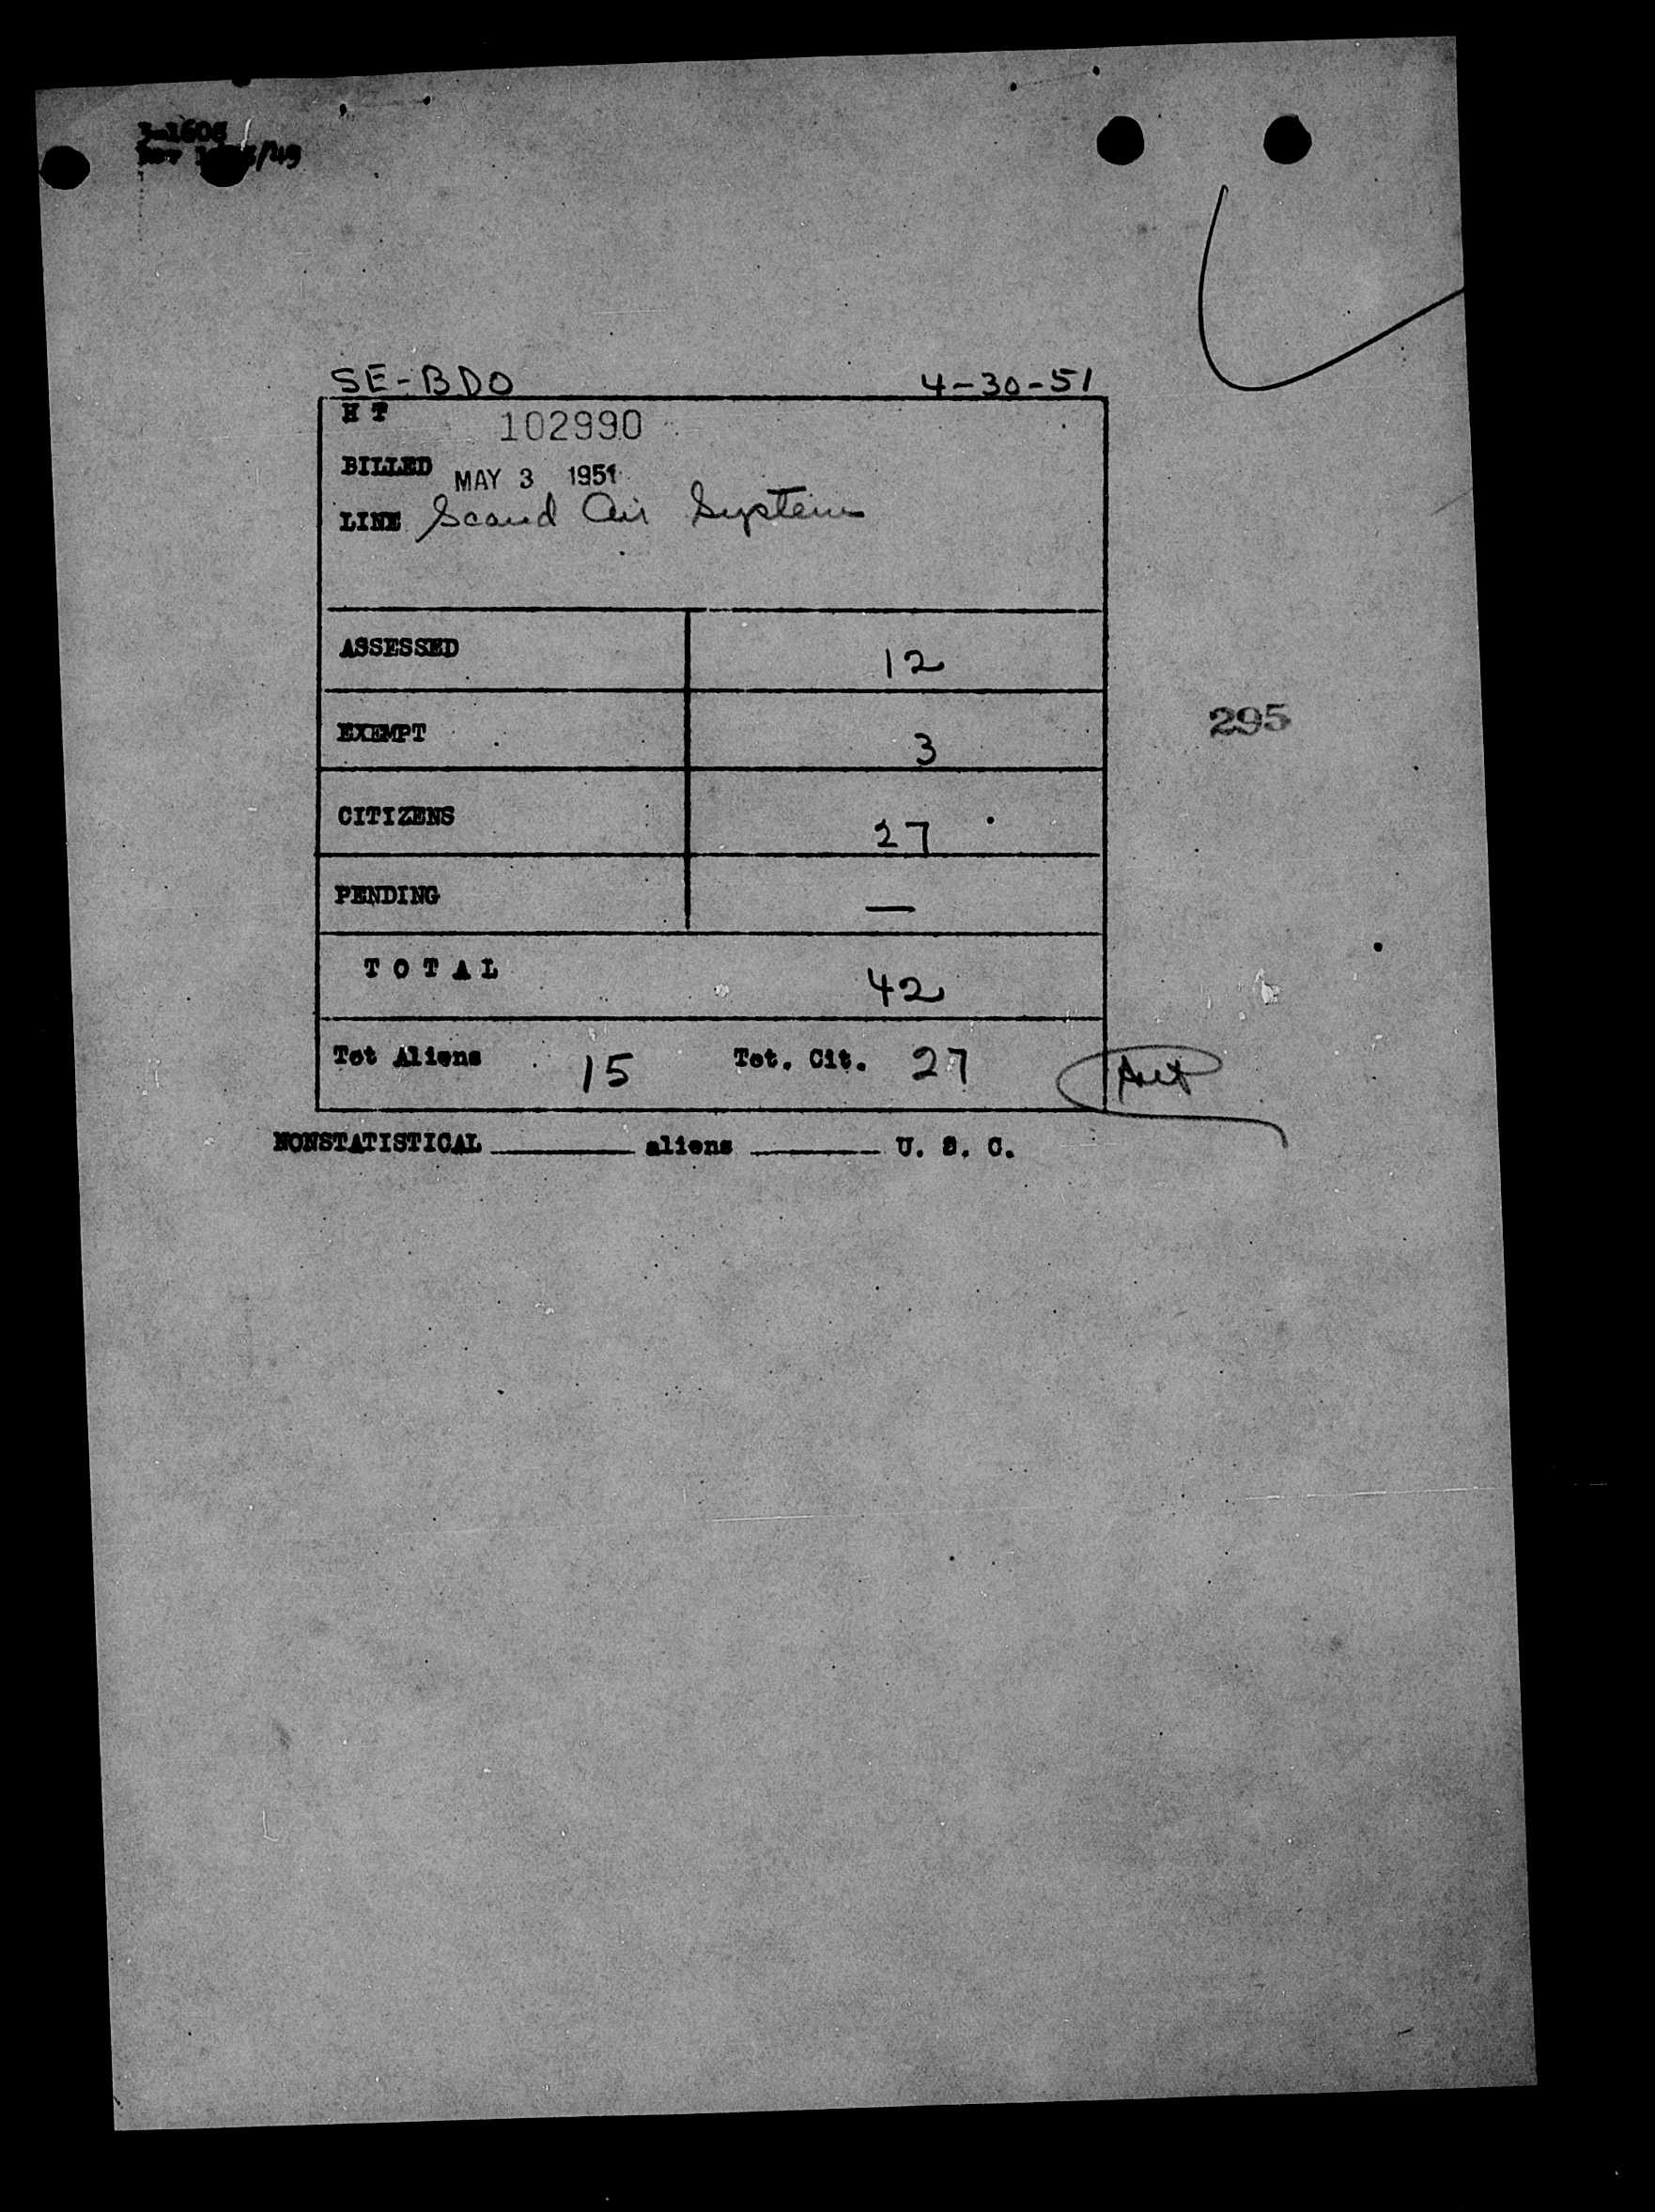 3-1608
SE-BDO 4-30-51
H T 102990
BILLED MAY 3 1951
LINE Scand Air System
ASSESSED 12
EXEMPT 3
295
CITIZENS 27
PENDING —
TOTAL 42
Tot Aliens 15 Tot. Cit. 27
NONSTATISTICAL ______ aliens ______ U. S. C.